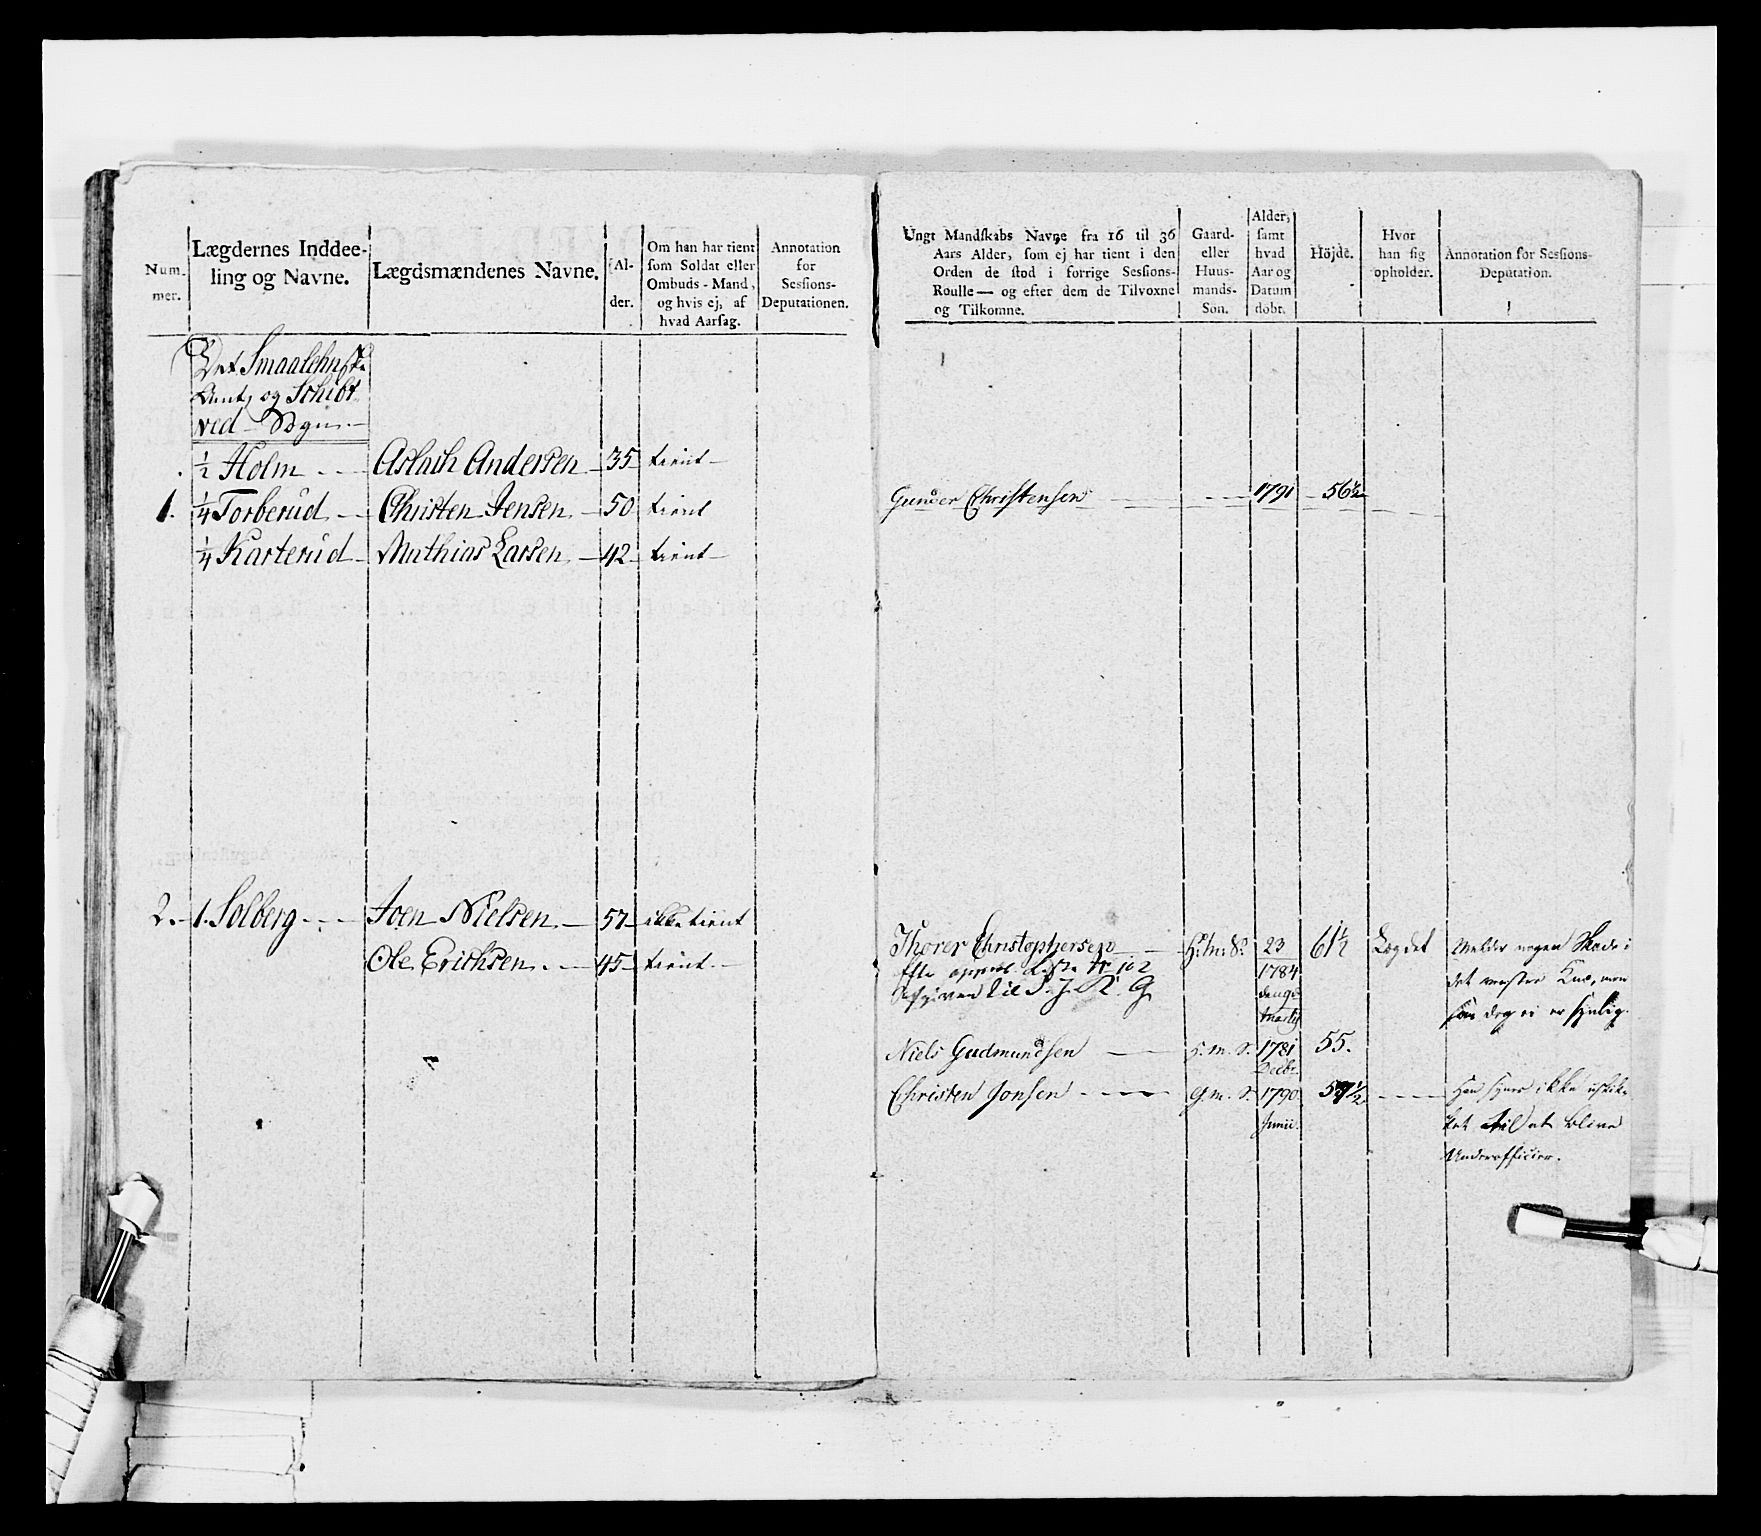 Num-
mer.
Lægdernes Inddee-
ling og Navne.
Lægdsmændenes Navne.
Al-
der.
Om han har tient
som Soldat eller
Ombuds-Mand,
og hvis ej, af
hvad Aarsag.
Annotation
for
Sessions-
Deputationen.
Det Smaalehnske
Amt, og Schibt
ved Sogn
1/2 Holm Aslach Andersen 35 tient
1. 1/4 Torberud Christen Jensen 50 tient
1/4 Karterud Mathias Larsen 42 tient
2. 1. Solberg Joen Nielsen 57 ikke tient
Ole Erichsen 45 tient
Ungt Mandskabs Navne fra 16 til 36
Aars Alder, som ej har tient i den
Orden de stod i forrige Sessions-
Roulle — og efter dem de Tilvoxne
og Tilkomne.
Gaard-
eller
Huus-
mands-
Sön.
Alder,
samt
hvad
Aar og
Datum
döbt.
Höjde.
Hvor
han sig
opholder.
Annotation for Sessions-
Deputation.
Gunder Christensen 1791 56 1/2
Thorer Christophersen H. m. S. 23 61 1/2 Lægdet Melder nogen Skade i
1784
det venstre Knæ, men
som dog ei er synlig.
Niels Gudmundsen H. m. S. 1781 55.
Decbr
Christen Jonsen G. m. S. 1790 57 1/2 Han synes ikke uskik-
Junii
ket til at blive
Underofficier.